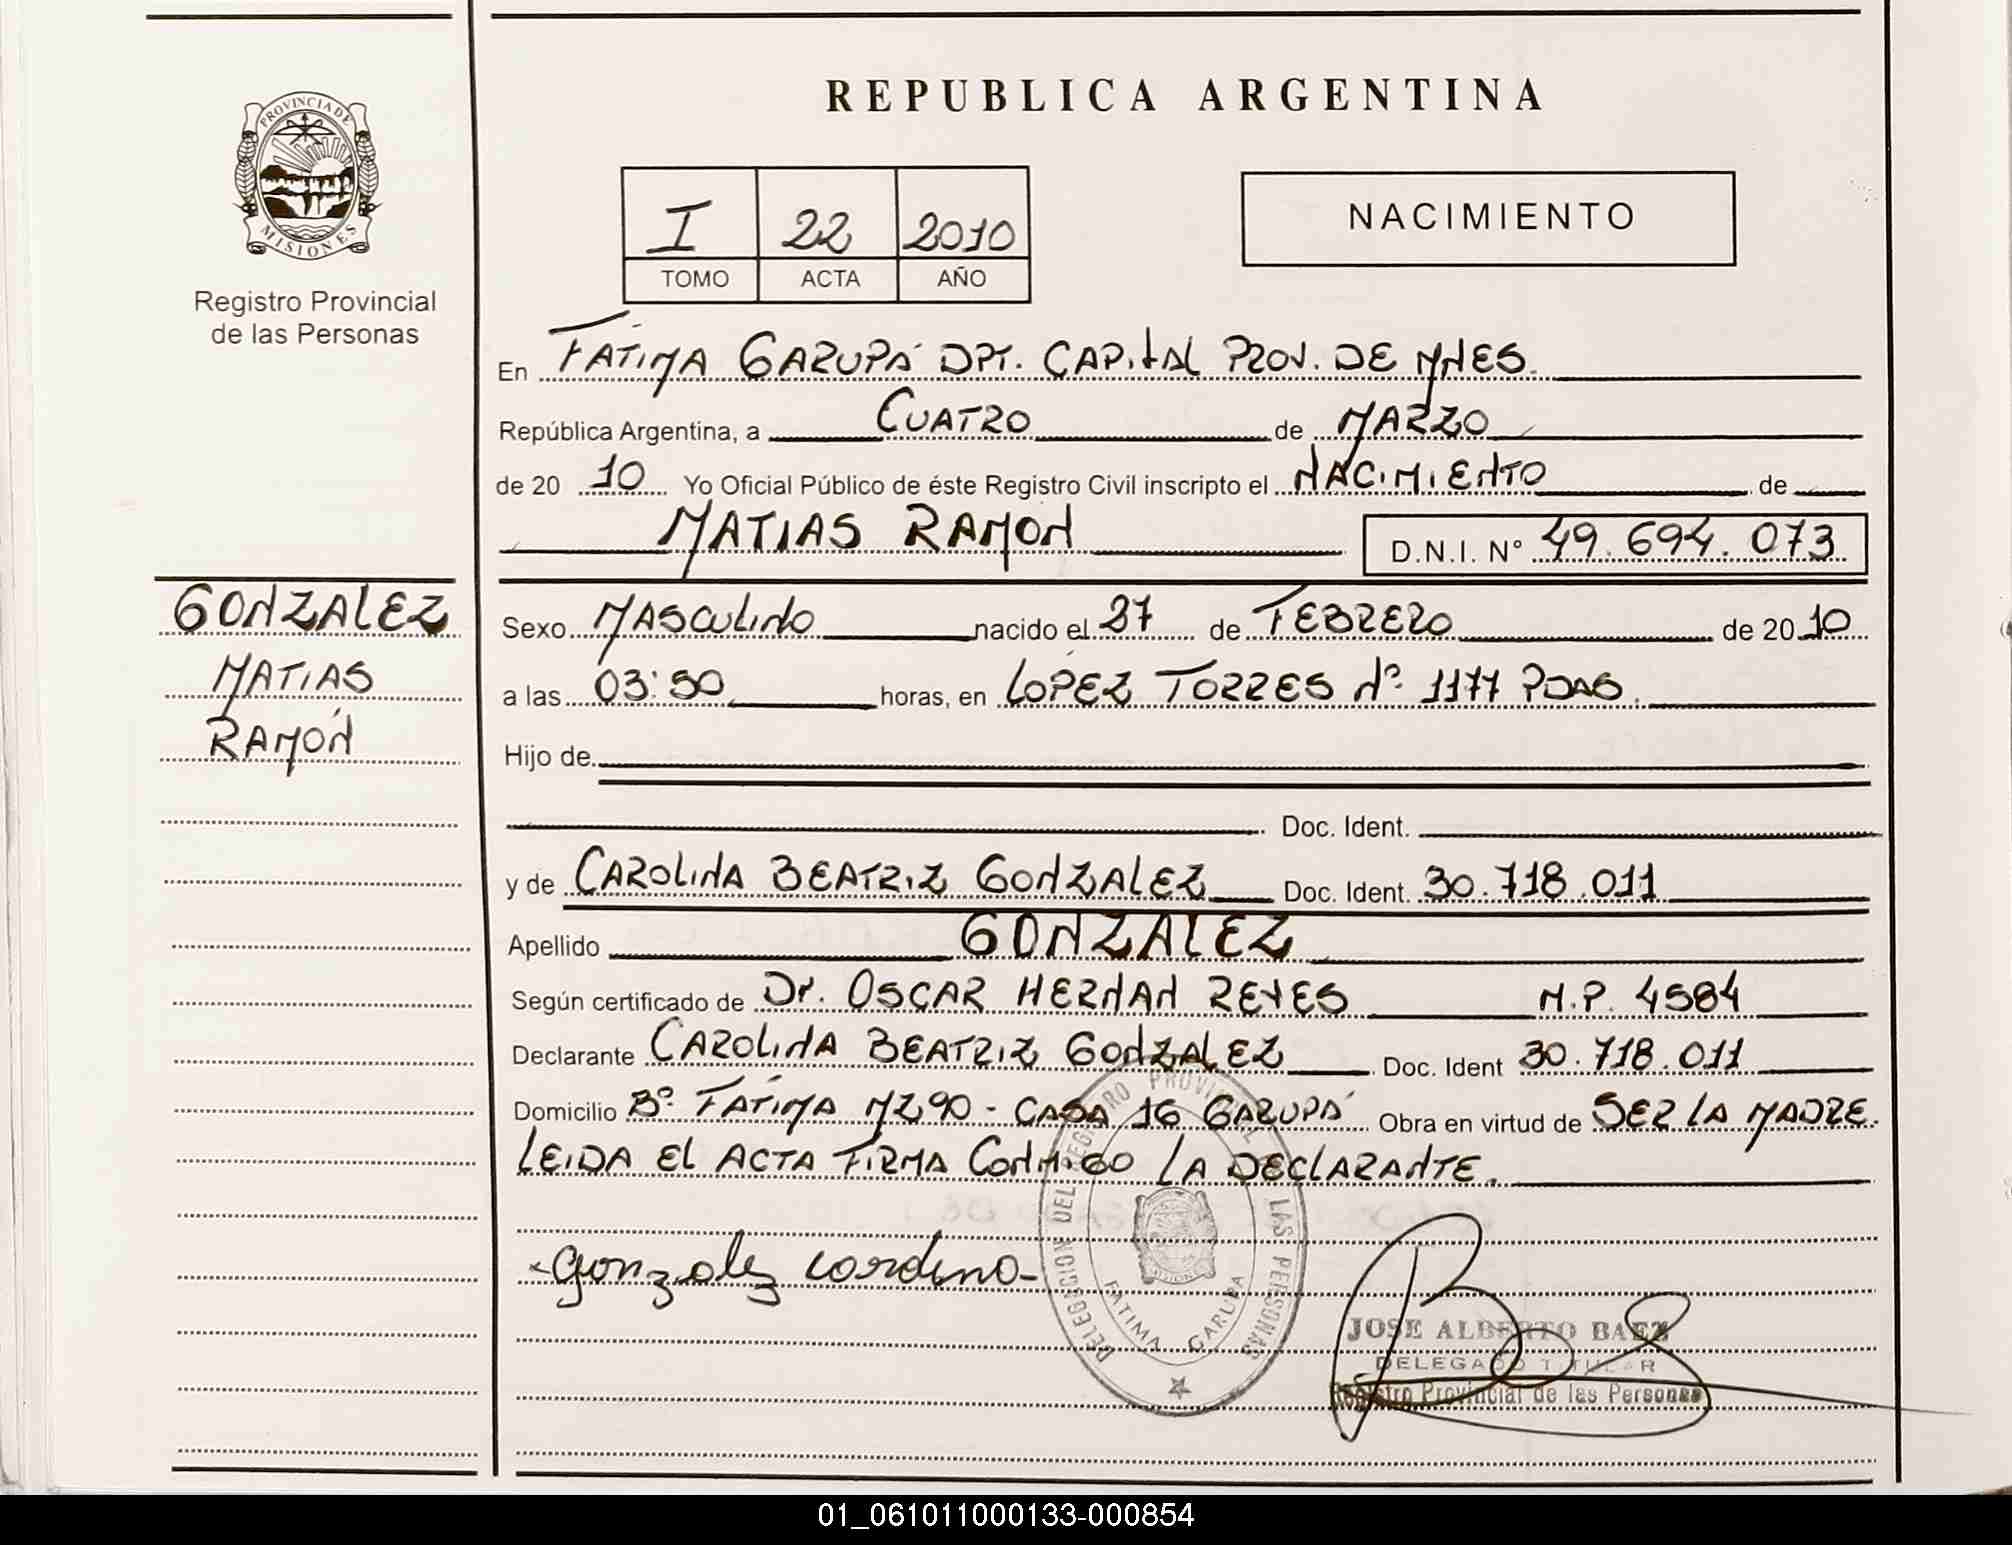 REPUBLICA ARGENTINA
PROVINCIA DE
MISIONES
Registro Provincial
de las Personas
I 22 2010
TOMO ACTA AÑO
NACIMIENTO
En FATIMA GARUPÁ DPT. CAPITAL PROV. DE MNES.
República Argentina, a CUATRO de MARZO
de 20 10 Yo Oficial Público de éste Registro Civil inscripto el NACIMIENTO de
MATIAS RAMON D.N.I. N° 49.694.073
GONZALEZ
MATIAS
RAMÓN
Sexo MASCULINO nacido el 27 de FEBRERO de 20 10
a las 03:50 horas, en LOPEZ TORRES N° 1177 PDAS.
Hijo de
Doc. Ident.
y de CAROLINA BEATRIZ GONZALEZ Doc. Ident. 30.718.011
Apellido GONZALEZ
Según certificado de Dr. OSCAR HERNAN REYES M.P. 4584
Declarante CAROLINA BEATRIZ GONZALEZ Doc. Ident 30.718.011
Domicilio B° FÁTIMA MZ 90 - CASA 16 GARUPÁ Obra en virtud de SER LA MADRE.
LEIDA EL ACTA FIRMA CONMIGO LA DECLARANTE.
DELEGACION DEL REGISTRO PROVINCIAL DE LAS PERSONAS
FATIMA GARUPA
MISIONES
JOSE ALBERTO BAEZ
DELEGADO TITULAR
Registro Provincial de las Personas
01_061011000133-000854